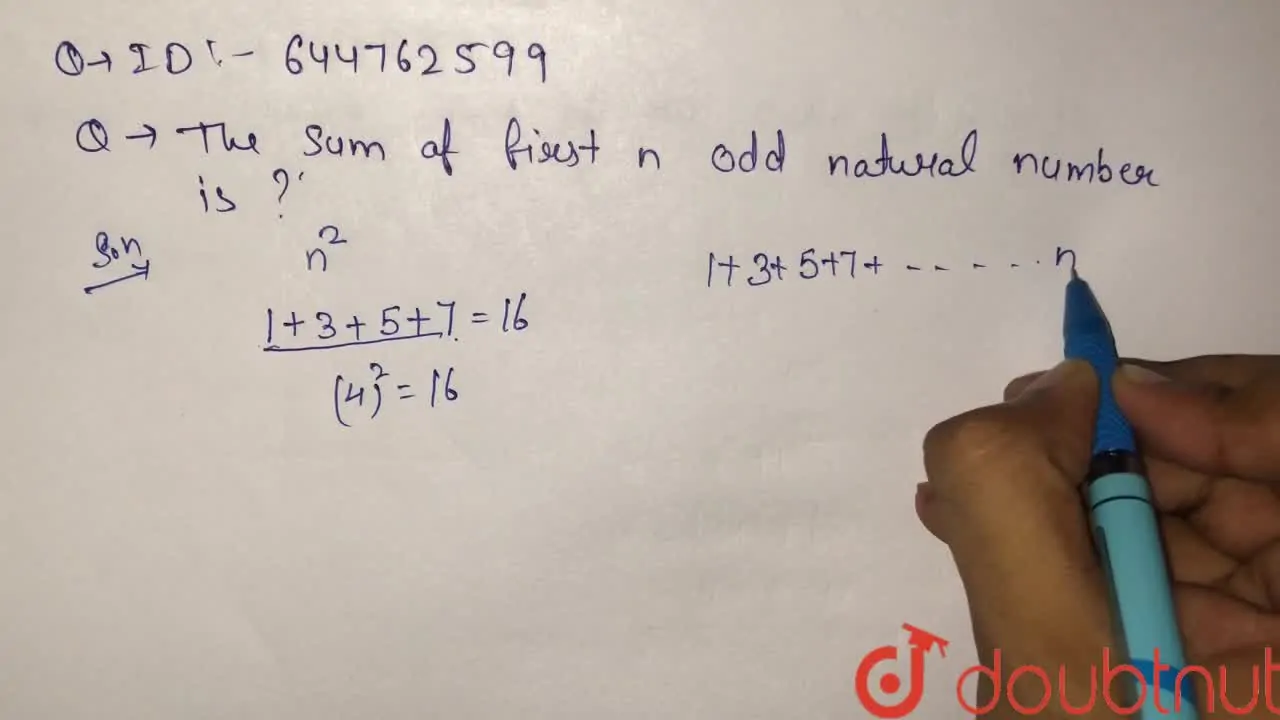 Q→ ID :- 644762599
Q → The Sum of first n odd natural number
is ?
Soln
n²
1+3+5+7 = 16
(4)² = 16
1+3+5+7+ ------ n
doubtnut